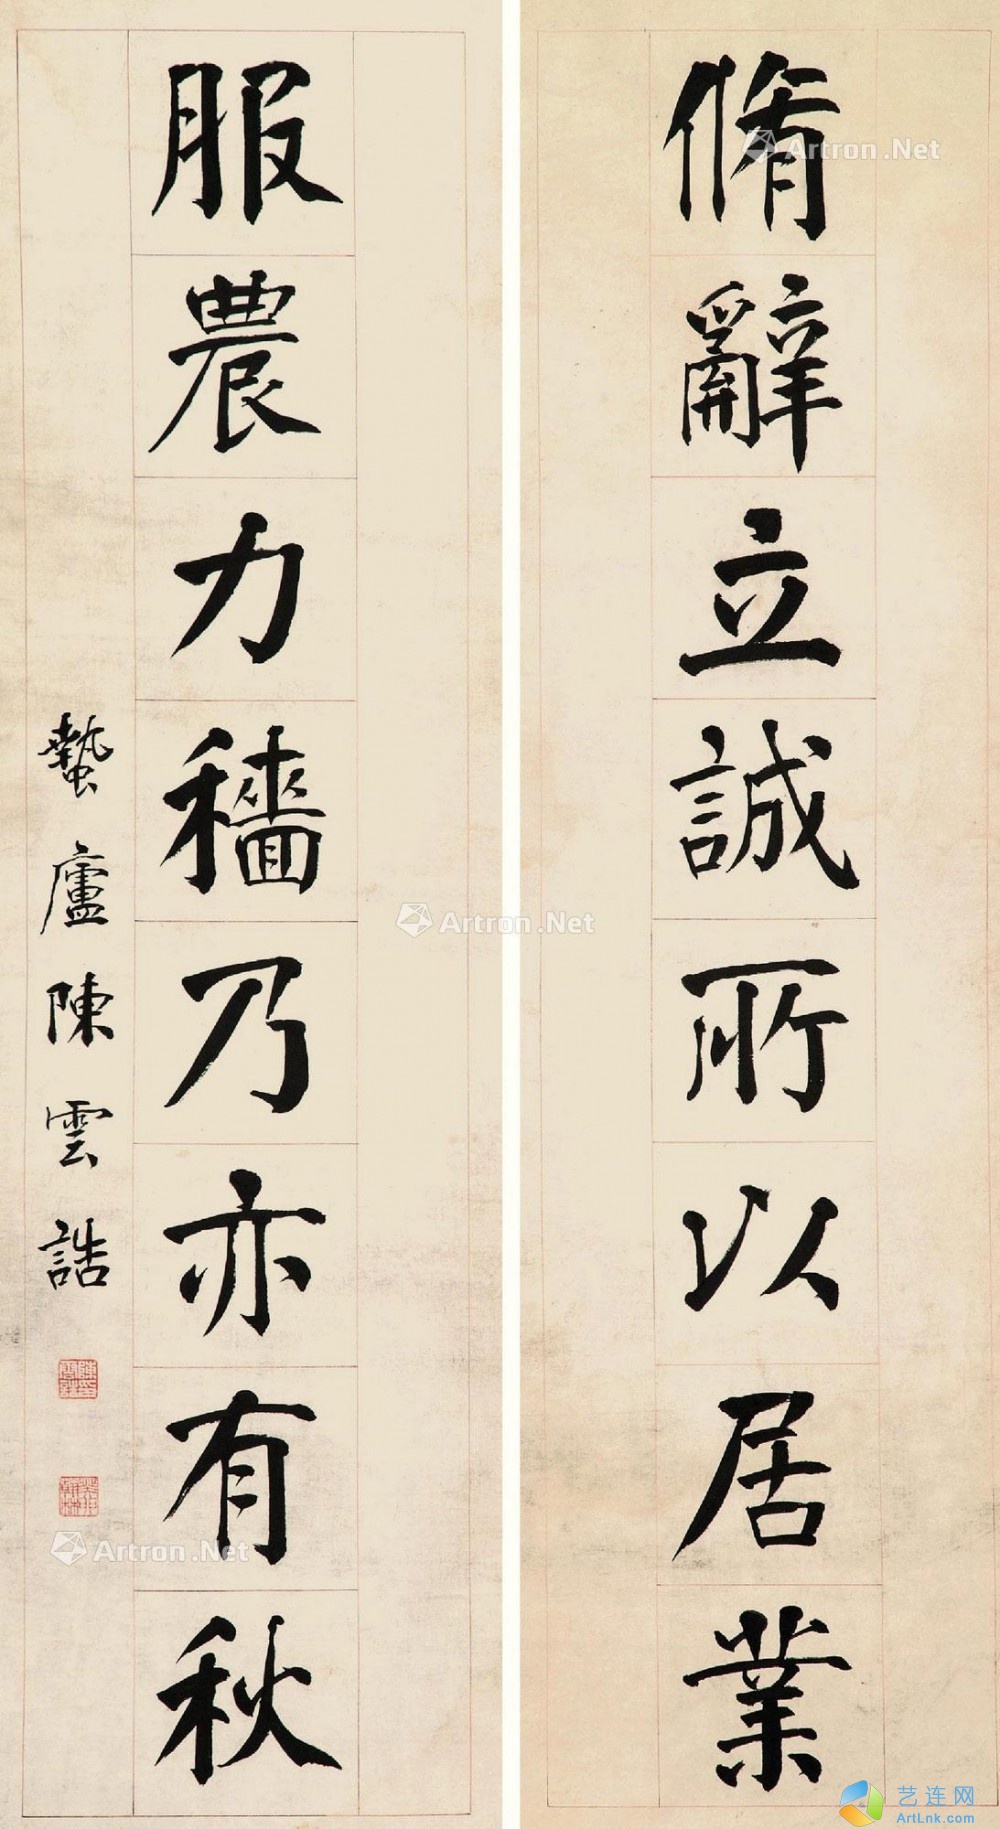 脩辭立誠所以居業
服農力穡乃亦有秋
蟄廬陳雲誥
Artron.Net
Artron.Net
Artron.Net
艺连网
ArtLnk.com